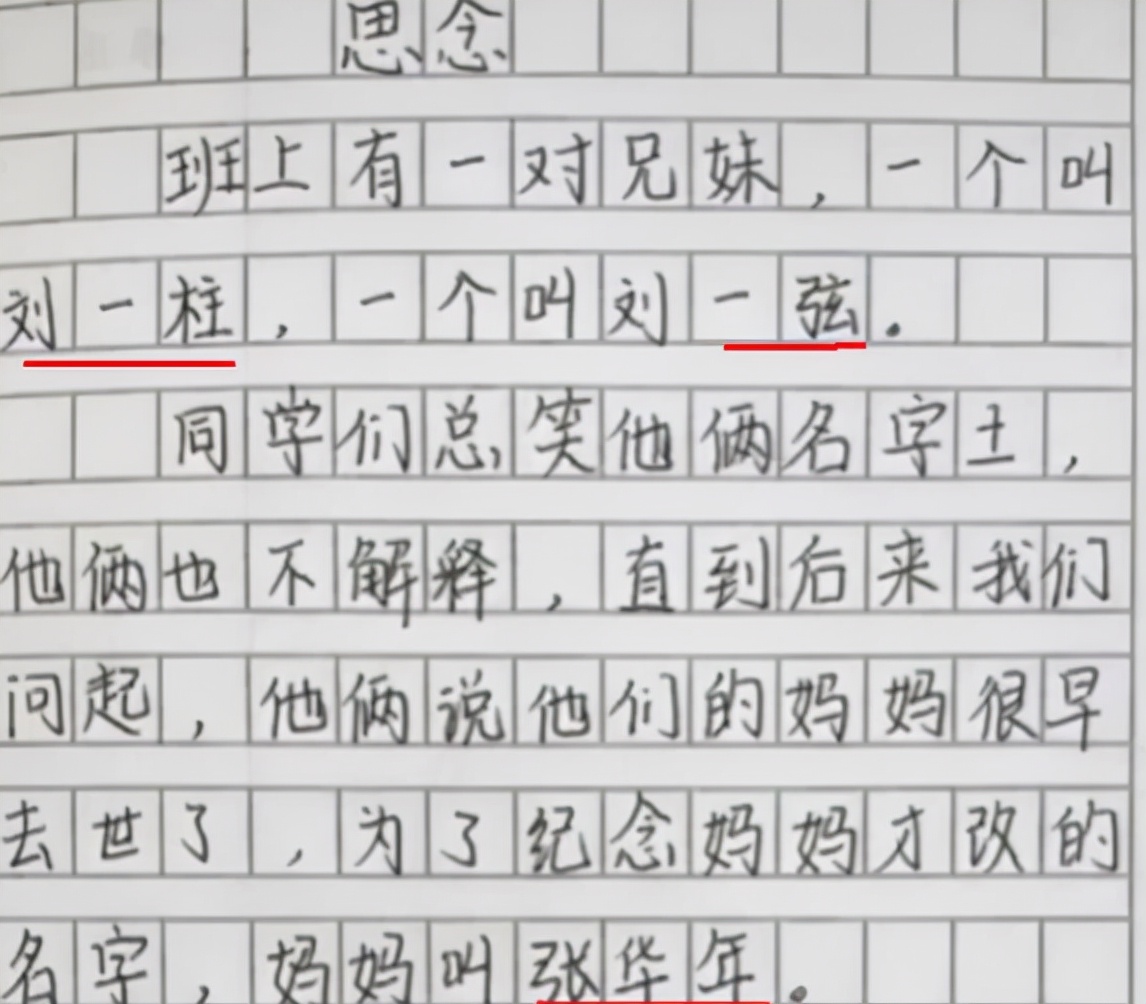 思念
班上有一对兄妹，一个叫
刘一柱，一个叫刘一弦。
同学们总笑他俩名字土，
他俩也不解释，直到后来我们
问起，他俩说他们的妈妈很早
去世了，为了纪念妈妈才改的
名字，妈妈叫张华年。